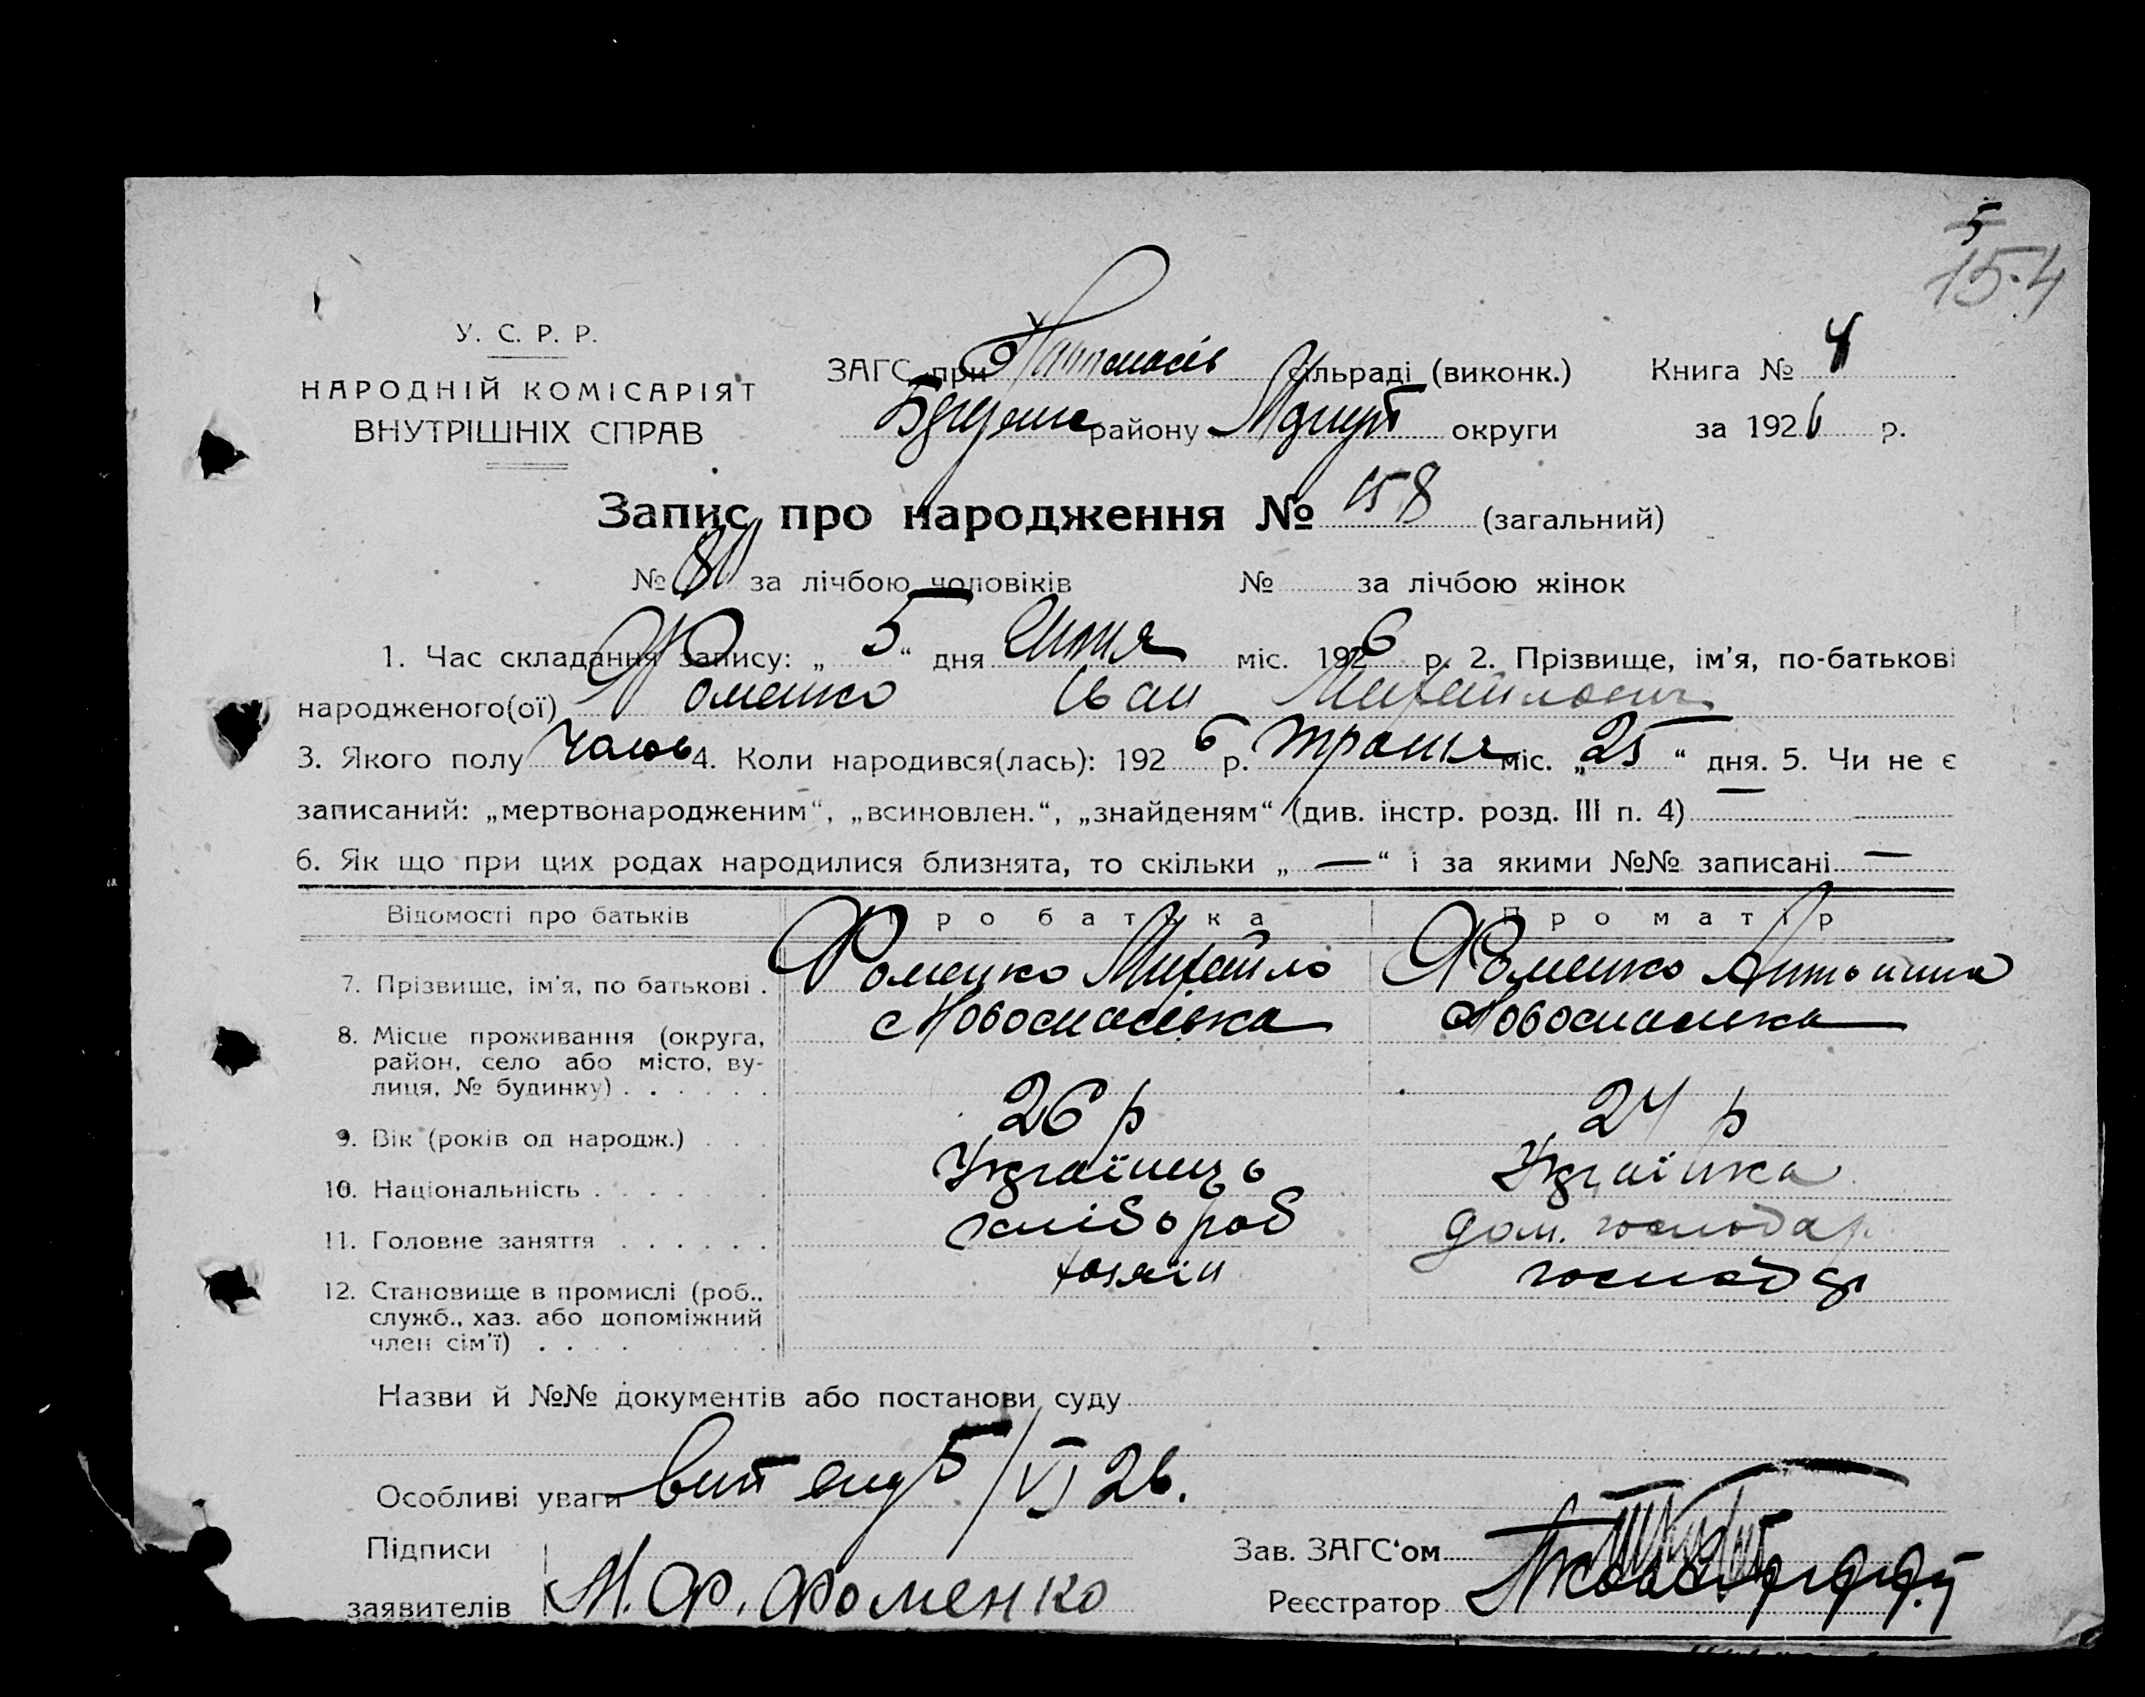 5
15.4
У. С. Р. Р.
НАРОДНІЙ КОМІСАРІЯТ
ВНУТРІШНІХ СПРАВ
ЗАГС при сільраді (виконк.) Книга № 4
району округи за 1926 р.
Запис про народження № 158 (загальний)
№ за лічбою чоловіків № за лічбою жінок
1. Час складання запису: „ 5 “ дня міс. 1926 р. 2. Прізвище, ім’я, по-батькові
народженого(ої) Фоменко Іван Михайлович
3. Якого полу 4. Коли народився(лась): 1926 р. травня міс. „ 25 “ дня. 5. Чи не є
записаний: „мертвонародженим“, „всиновлен.“, „знайденям“ (див. інстр. розд. III п. 4) —
6. Як що при цих родах народилися близнята, то скільки „ — “ і за якими №№ записані —
Відомості про батьків Про батька Про матір
7. Прізвище, ім’я, по батькові . Фоменко Михайло Фоменко Антонина
8. Місце проживання (округа, Новоспасівка Новоспасівка
район, село або місто, ву-
лиця, № будинку) . . . . . .
9. Вік (років од народж.) . . . 26 р 24 р
10. Національність . . . . . . . Українець Українка
11. Головне заняття . . . . . . хлібороб дом. господар.
12. Становище в промислі (роб., хозяїн
служб., хаз. або допоміжний
член сім’ї) . . . .
Назви й №№ документів або постанови суду
Особливі уваги 5/VI 26.
Підписи Зав. ЗАГС‘ом
заявителів М. Ф. Фоменко Реєстратор